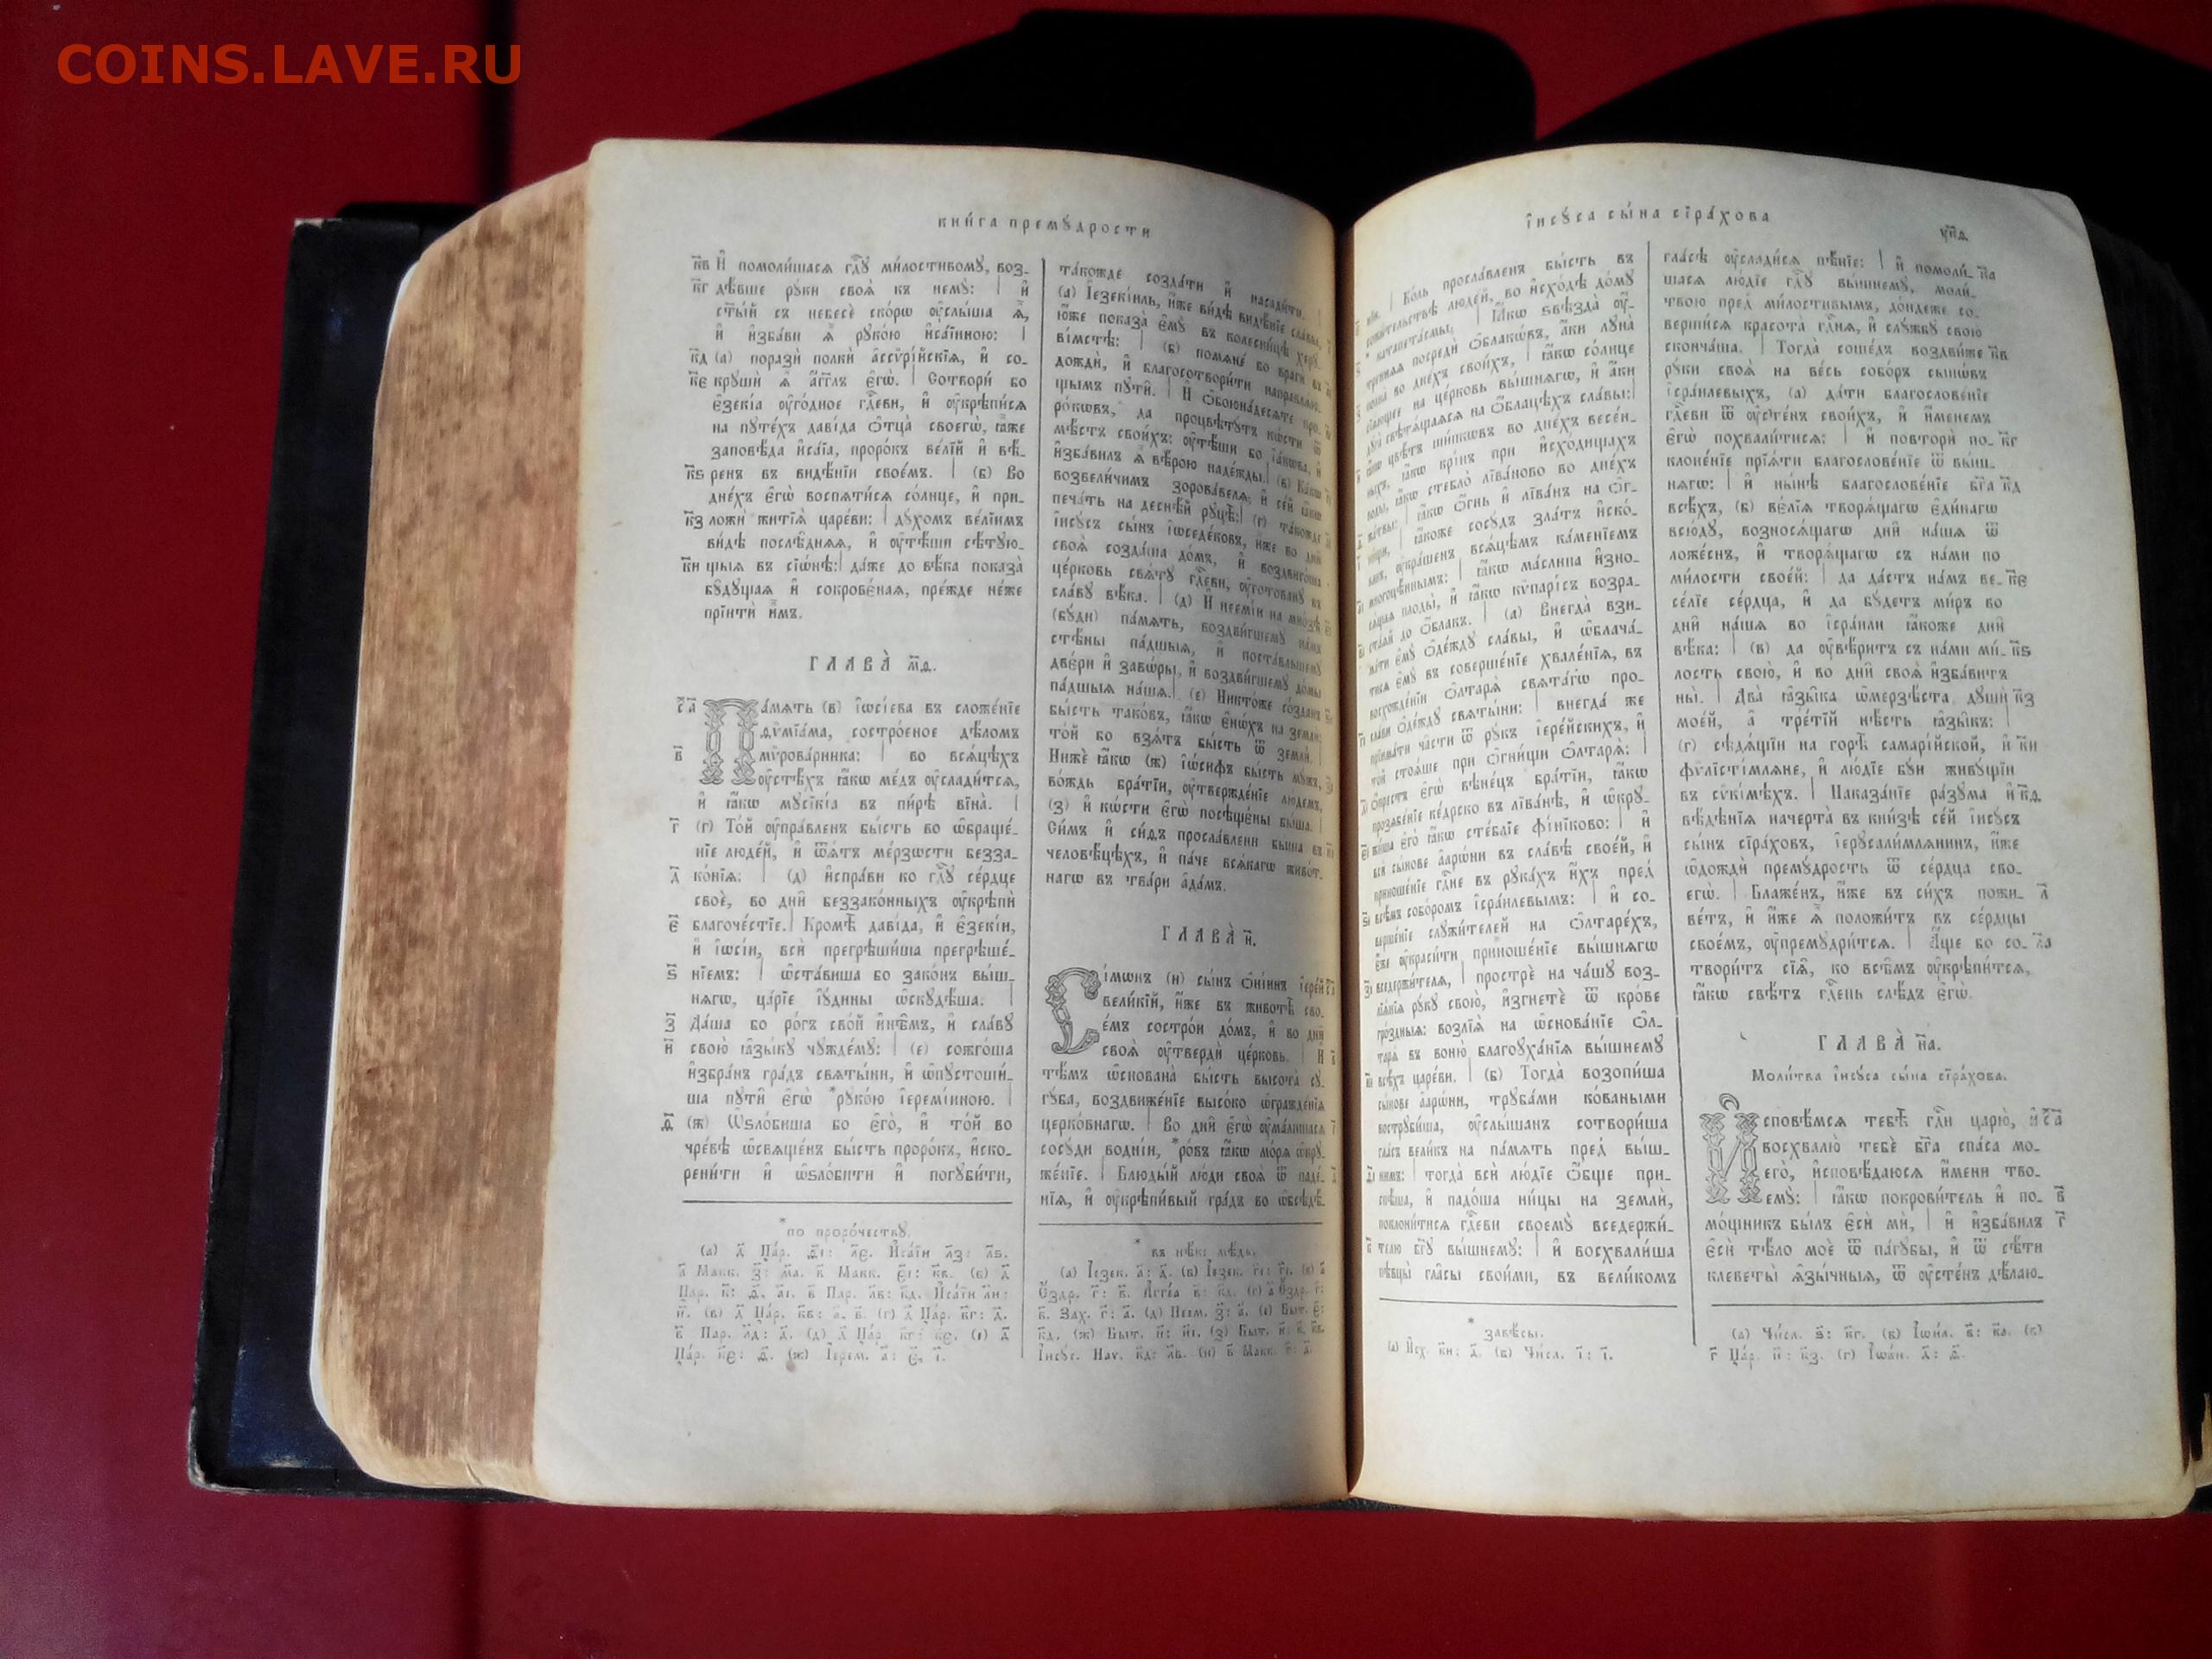 COINS.LAVE.RU
кни́га премꙋдрости
к҃в И҆ помоли́шасѧ гдⷭ҇ꙋ ми́лостивомꙋ, воз-
к҃г дѣ́вше рꙋки своѧ̀ къ немꙋ̀: | и҆
ст҃ы́й съ небесѐ ско́рѡ ᲂу҆слы́ша ѧ҆̀,
и҆ и҆зба́ви ѧ҆̀ рꙋко́ю и҆са́їиною: |
к҃д (а) поразѝ полкѝ а҆ссѷрі́йскїѧ, и҆ со-
к҃є крꙋшѝ ѧ҆̀ а҆́гг҃лъ є҆гѡ̀. | Сотвори́ бо
є҆зекі́а ᲂу҆го́дное гдⷭ҇еви, и҆ ᲂу҆крѣпи́сѧ
на пꙋте́хъ даві́да ѻ҆тца̀ своегѡ̀, ꙗ҆̀же
заповѣ́да и҆са́їа, проро́къ ве́лїй и҆ вѣ́-
к҃ѕ ренъ въ видѣ́нїи свое́мъ. | (б) Во
дне́хъ є҆гѡ̀ воспѧти́сѧ со́лнце, и҆ при-
к҃з ложѝ житїѧ̀ царе́ви: | дꙋ́хомъ ве́лїимъ
ви́дѣ послѣ̑днѧѧ, и҆ ᲂу҆тѣ́ши сѣ́тꙋю-
к҃и щыѧ въ сїѡ́нѣ: | да́же до вѣ́ка показа̀
бꙋ̑дꙋщаѧ и҆ сокровє́наѧ, пре́жде не́же
прїитѝ и҆̀мъ.
ГЛАВА̀ м҃ѳ.
с҃т҃ а҃ Па́мѧть (в) і҆ѡсі́ева въ сложе́нїе
ѳѷмїа́ма, состро́еное дѣ́ломъ
в҃ мѷрова́рника: | во всѧ́цѣхъ
ᲂу҆стѣ́хъ ꙗ҆́кѡ ме́дъ ᲂу҆слади́тсѧ,
и҆ ꙗ҆́кѡ мꙋсїкі́а въ пи́рѣ вїна̀. |
г҃ (г) То́й ᲂу҆пра́вленъ бы́сть во ѡ҆браще́-
нїе люде́й, и҆ ѿѧ́тъ ме́рзѡсти безза-
д҃ ко́нїѧ: | (д) и҆спра́ви ко гдⷭ҇ꙋ се́рдце
своѐ, во днѝ беззако́нныхъ ᲂу҆крѣпѝ
є҃ благоче́стїе. | Кромѣ̀ даві́да, и҆ є҆зекі́и,
и҆ і҆ѡсі́и, всѝ прегрѣши́ша прегрѣше́-
ѕ҃ нїемъ: | ѡ҆ста́виша бо зако́нъ вы́ш-
нѧгѡ, ца́рїе і҆ꙋ̑дины ѡ҆скꙋдѣ́ша. |
з҃ Да́ша бо ро́гъ сво́й и҆нѣ̑мъ, и҆ сла́вꙋ
и҃ свою̀ ꙗ҆зы́кꙋ чꙋжде́мꙋ: | (є) сожго́ша
и҆збра́нъ гра́дъ свѧты́ни, и҆ ѡ҆пꙋстоши́-
ша пꙋти̑ є҆гѡ̀ *рꙋко́ю і҆еремі́иною. |
ѳ҃ (ж) Ѡ҆ѕло́биша бо є҆го̀, и҆ то́й во
чре́вѣ ѡ҆свѧще́нъ бы́сть проро́къ, и҆ско-
рени́ти и҆ ѡ҆ѕло́бити и҆ погꙋби́ти,
*по проро́чествꙋ.
та́кожде созда́ти и҆ насади́ти. |
(а) І҆езекі́иль, и҆́же ви́дѣ видѣ́нїе сла́вы,
ю҆́же показа̀ є҆мꙋ̀ въ колесни́цѣ херꙋ-
ві́мстѣ: | (б) помѧнꙋ́ бо врагѝ въ
дождѝ, и҆ благосотвори́ти направлѧ́ю-
щымъ пꙋти̑. | И҆ ѻ҆боюна́десѧте про-
ро́кѡвъ, да процвѣтꙋ́тъ кѡ́сти ѿ
мѣ́стъ свои́хъ: ᲂу҆тѣ́ши бо і҆а́кѡва, и҆
и҆зба́вилъ ѧ҆̀ вѣ́рою наде́жды. | (в) Ка́кѡ
возвели́чимъ зорова́велѧ; и҆ се́й ꙗ҆́кѡ
печа́ть на деснѣ́й рꙋцѣ̀: | (г) та́кожде
і҆исꙋ́съ сы́нъ і҆ѡседе́ковъ, и҆̀же во днѝ
своѧ̑ созда́ша до́мъ, и҆ воздвиго́ша
це́рковь свѧ́тꙋ гдⷭ҇еви, ᲂу҆гото́ванꙋ въ
сла́вꙋ вѣ́ка. | (д) И҆ неемі́и на мно́зѣ
(бꙋ́ди) па́мѧть, воздви́гшемꙋ на́мъ
стѣ́ны па́дшыѧ, и҆ поста́вльшемꙋ
двє́ри и҆ завѡ́ры, и҆ воздви́гшемꙋ до́мы
па́дшыѧ на́шѧ. | (є) Никто́же со́зданъ
бы́сть тако́въ, ꙗ҆́кѡ є҆нѡ́хъ на землѝ:
то́й бо взѧ́тъ бы́сть ѿ землѝ. |
Нижѐ ꙗ҆́кѡ (ж) і҆ѡ́сифъ бы́сть мꙋ́жъ,
во́ждь бра́тїи, ᲂу҆твержде́нїе лю́демъ,
(з) и҆ кѡ́сти є҆гѡ̀ посѣще́ны бы́ша. |
Си́мъ и҆ си́ѳъ просла́влени бы́ша въ
человѣ́цѣхъ, и҆ па́че всѧ́кагѡ живо́т-
нагѡ въ тва́ри а҆да́мъ.
ГЛАВА̀ н҃.
Сі́мѡнъ (и) сы́нъ ѻ҆ні́инъ і҆ере́й
вели́кїй, и҆́же въ животѣ̀ сво-
е́мъ состро́и до́мъ, и҆ во дни̑
своѧ̑ ᲂу҆твердѝ це́рковь. | И҆
тѣ́мъ ѡ҆снована̀ бы́сть высота̀ сꙋ-
гꙋ́ба, воздвиже́нїе высо́ко ѡ҆гражде́нїѧ
церко́внагѡ. | Во дни̑ є҆гѡ̀ ᲂу҆ма́лишасѧ
сосꙋ́ди водні́и, *ро́въ ꙗ҆́кѡ мо́рѧ ѡ҆крꙋ-
же́нїе. | Блюды́й лю́ди своѧ̑ ѿ паде́-
нїѧ, и҆ ᲂу҆крѣпи́вый гра́дъ во ѡ҆бсѣде́-
*въ нѣ́кї. мѣ́дь.
і҆исꙋ́са сы́на сїра́хова
ᲂу҆п҃ѳ
нїи. | Ко́ль просла́вленъ бы́сть въ
сожи́тельствѣ люде́й, во и҆схо́дѣ до́мꙋ
*катапета́смы; | Ꙗ҆́кѡ ѕвѣзда̀ ᲂу҆́-
треннѧѧ посредѣ̀ ѻ҆́блакѡвъ, а҆́ки лꙋна̀
полна̀ во дне́хъ свои́хъ, | ꙗ҆́кѡ со́лнце
сїѧ́ющее на це́рковь вы́шнѧгѡ, и҆ а҆́ки
дꙋга̀ свѣтѧ́щаѧсѧ на ѻ҆́блацѣхъ сла́вы: |
ꙗ҆́кѡ цвѣ́тъ ши́пкѡвъ во дне́хъ весе́н-
ныхъ, ꙗ҆́кѡ крі́нъ при и҆схо́дищахъ
воды̀, ꙗ҆́кѡ стебло̀ лїва́ново во дне́хъ
жа́твы: | ꙗ҆́кѡ ѻ҆́гнь и҆ лїва́нъ на ѻ҆г-
ни́щи, | ꙗ҆́коже сосꙋ́дъ зла́тъ и҆ско́-
ванъ, ᲂу҆кра́шенъ всѧ́цѣмъ ка́менїемъ
многоцѣ́ннымъ: | ꙗ҆́кѡ ма́слина и҆зно-
сѧ́щаѧ плоды̀, и҆ ꙗ҆́кѡ кѷпарі́съ возра-
ста́ѧй до ѻ҆́блакъ. | (а) Внегда̀ взи-
ма́ти є҆мꙋ̀ ѻ҆де́ждꙋ сла́вы, и҆ ѡ҆блача́-
тисѧ є҆мꙋ̀ въ соверше́нїе хвале́нїѧ, въ
восхожде́нїи ѻ҆лтарѧ̀ свѧта́гѡ про-
сла́ви ѻ҆де́ждꙋ свѧты́ни: | внегда́ же
прїима́ти ча̑сти ѿ рꙋ́къ і҆ере́йскихъ, и҆
то́й стоѧ́ше при ѻ҆гни́щи ѻ҆лтарѧ̀: |
ѡ҆́крестъ є҆гѡ̀ вѣне́цъ бра́тїи, ꙗ҆́кѡ
прозѧбе́нїе ке́дрско въ лїва́нѣ, и҆ ѡ҆крꙋ-
жи́ша є҆го̀ ꙗ҆́кѡ сте́блїе фі́нїково: | и҆
всѝ сы́нове а҆арѡ́ни въ сла́вѣ свое́й, и҆
приноше́нїе гдⷭ҇не въ рꙋка́хъ и҆́хъ пред̾
всѣ́мъ собо́ромъ і҆сра́илевымъ: | и҆ со-
верше́нїе слꙋжи́телей на ѻ҆лтаре́хъ,
є҆́же ᲂу҆кра́сити приноше́нїе вы́шнѧгѡ
вседержи́телѧ, | прострѐ на ча́шꙋ воз-
лїѧ́нїѧ рꙋ́кꙋ свою̀, и҆згнетѐ ѿ кро́ве
гро́здныѧ: возлїѧ̀ на ѡ҆снова́нїе ѻ҆л-
тарѧ̀ въ воню̀ благоꙋха́нїѧ вы́шнемꙋ
всѣ́хъ царе́ви. | (б) Тогда̀ возопи́ша
сы́нове а҆арѡ́ни, трꙋба́ми ко́ваными
вострꙋби́ша, ᲂу҆слы́шанъ сотвори́ша
гла́съ вели́къ на па́мѧть пред̾ вы́ш-
нимъ: | тогда̀ всѝ лю́дїе ѻ҆́бще при-
спѣ́ша, и҆ падо́ша ни́цы на землѝ,
поклони́тисѧ гдⷭ҇еви своемꙋ̀ вседержи́-
телю бг҃ꙋ вы́шнемꙋ: | и҆ восхвали́ша
пѣвцы̀ гла́сы свои́ми, въ вели́комъ
*завѣ́сы.
(а) И҆сх. к҃и: д҃. (б) Чи́сл. і҃: і҃.
гла́сѣ ᲂу҆слади́сѧ пѣ́нїе: | и҆ помоли́- к҃а
шасѧ лю́дїе гдⷭ҇ꙋ вы́шнемꙋ, моли́-
твою пред̾ ми́лостивымъ, до́ндеже со-
верши́сѧ красота̀ гдⷭ҇нѧ, и҆ слꙋ́жбꙋ свою̀
сконча́ша. | Тогда̀ соше́дъ воздви́же к҃в
рꙋ́ки своѧ̑ на ве́сь собо́ръ сынѡ́въ
і҆сра́илевыхъ, (а) да́ти благослове́нїе
гдⷭ҇еви ѿ ᲂу҆сте́нъ свои́хъ, и҆ и҆́менемъ
є҆гѡ̀ похвали́тисѧ: | и҆ повторѝ по- к҃г
клоне́нїе прїѧ́ти благослове́нїе ѿ вы́ш-
нѧгѡ: | и҆ ны́нѣ благослове́нїе бг҃а к҃д
всѣ́хъ, (б) вє́лїѧ творѧ́щагѡ є҆ди́нагѡ
всю́дꙋ, возносѧ́щагѡ дни̑ на́шѧ ѿ
ложе́снъ, и҆ творѧ́щагѡ съ на́ми по
ми́лости свое́й: | да да́стъ на́мъ ве- к҃є
се́лїе се́рдца, и҆ да бꙋ́детъ ми́ръ во
дни̑ на́шѧ во і҆сра́или ꙗ҆́коже дни̑
вѣ́ка: | (в) да ᲂу҆вѣ́ритъ съ на́ми ми́- к҃ѕ
лость свою̀, и҆ во дни̑ своѧ̑ и҆зба́витъ
ны̀. | Два̀ ꙗ҆зы̑ка ѡ҆мерзѣ́ста дꙋшѝ к҃з
мое́й, а҆ тре́тїй нѣ́сть ꙗ҆зы́къ: |
(г) сѣдѧ́щїи на горѣ̀ самарі́йской, и҆ к҃и
фѷлїсті́млѧне, и҆ лю́дїе бꙋ́и живꙋ́щїи
въ сїкі́мѣхъ. | Наказа́нїе ра́зꙋма и҆ к҃ѳ
вѣ́дѣнїѧ начерта̀ въ кни́зѣ се́й і҆исꙋ́съ
сы́нъ сїра́ховъ, і҆ерꙋсали́млѧнинъ, и҆́же
ѡ҆дождѝ премꙋ́дрость ѿ се́рдца сво-
егѡ̀. | Блаже́нъ, и҆́же въ си́хъ пожи- л҃
ве́тъ, и҆ и҆́же ѧ҆̀ положи́тъ въ се́рдцы
свое́мъ, ᲂу҆премꙋ́дритсѧ. | А҆́ще бо со- л҃а
твори́тъ сїѧ̑, ко всѣ̑мъ ᲂу҆крѣпи́тсѧ,
ꙗ҆́кѡ свѣ́тъ гдⷭ҇ень слѣ́дъ є҆гѡ̀.
ГЛАВА̀ н҃а.
Моли́тва і҆исꙋ́са сы́на сїра́хова.
И҆сповѣ́мсѧ тебѣ̀ гдⷭ҇и царю̀, и҆
восхвалю̀ тебѐ бг҃а спа́са мо-
его̀, и҆сповѣ́даюсѧ и҆́мени тво-
емꙋ̀: | ꙗ҆́кѡ покрови́тель и҆ по- в҃
мо́щникъ бы́лъ є҆сѝ мѝ, | и҆ и҆зба́вилъ г҃
є҆сѝ тѣ́ло моѐ ѿ па́гꙋбы, и҆ ѿ сѣ́ти
клеветы̀ ѧ҆зы́чныѧ, ѿ ᲂу҆сте́нъ дѣ́лаю-
(а) Чи́сл. ѕ҃: к҃г. (б) І҆ѡи́л. в҃: к҃а. (в)
г҃ Ца́р. и҃: к҃з. (г) І҆ѡа́н. д҃: ѳ҃.